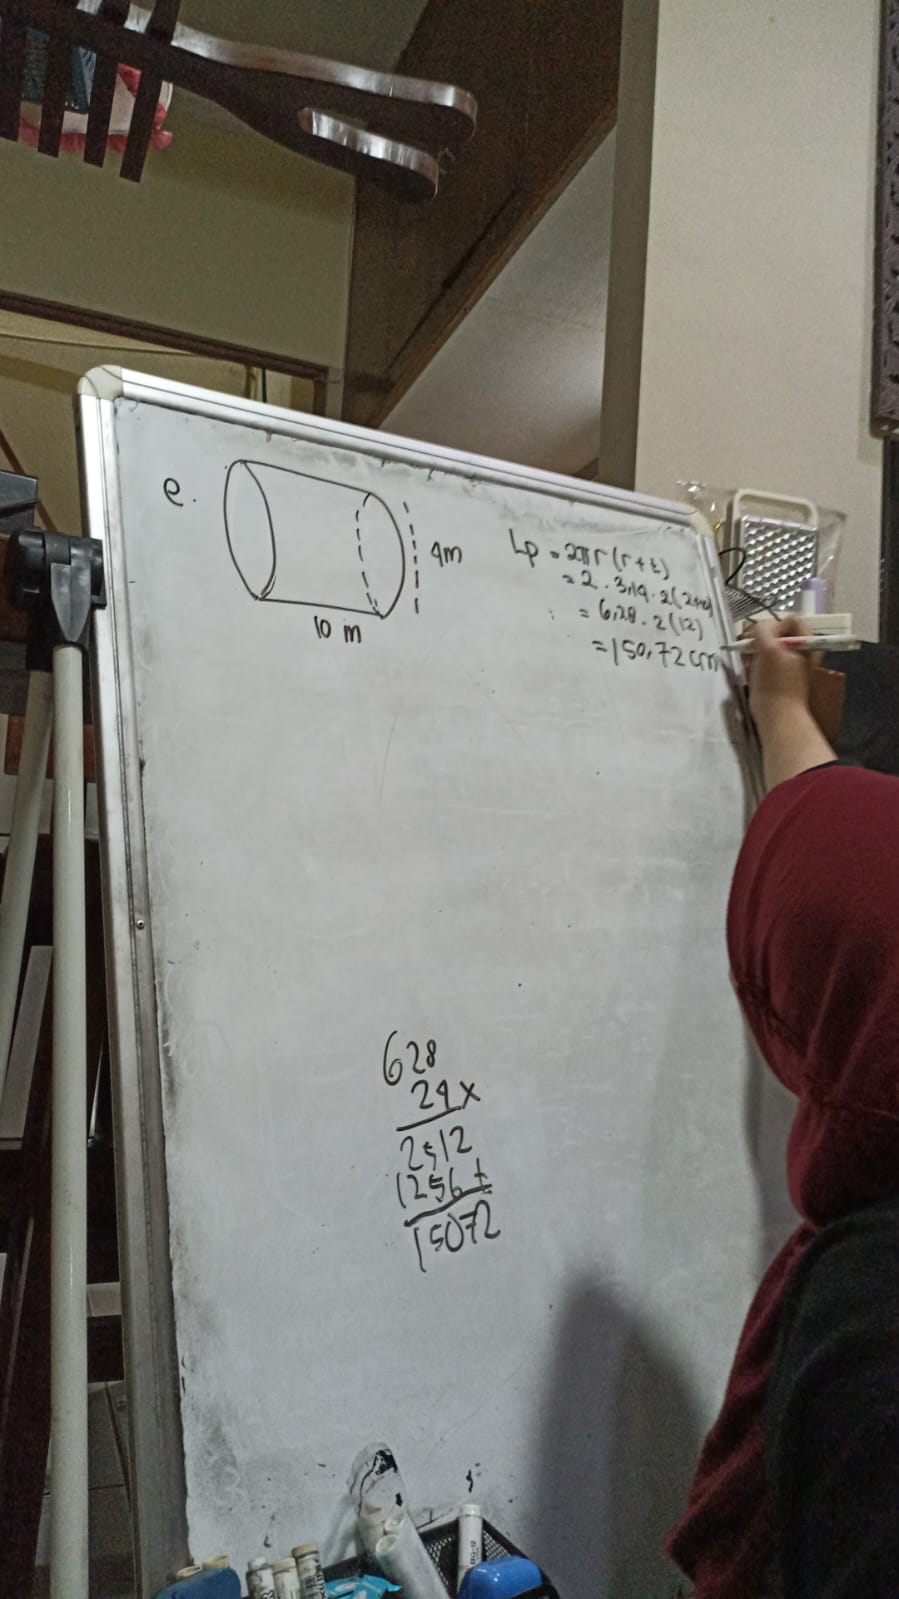 e.
4m
10 m
Lp = 2πr(r+t)
= 2 . 3,14 . 2(2+10)
= 6,28 . 2(12)
= 150,72 cm
628
24 x
2512
1256 +
15072